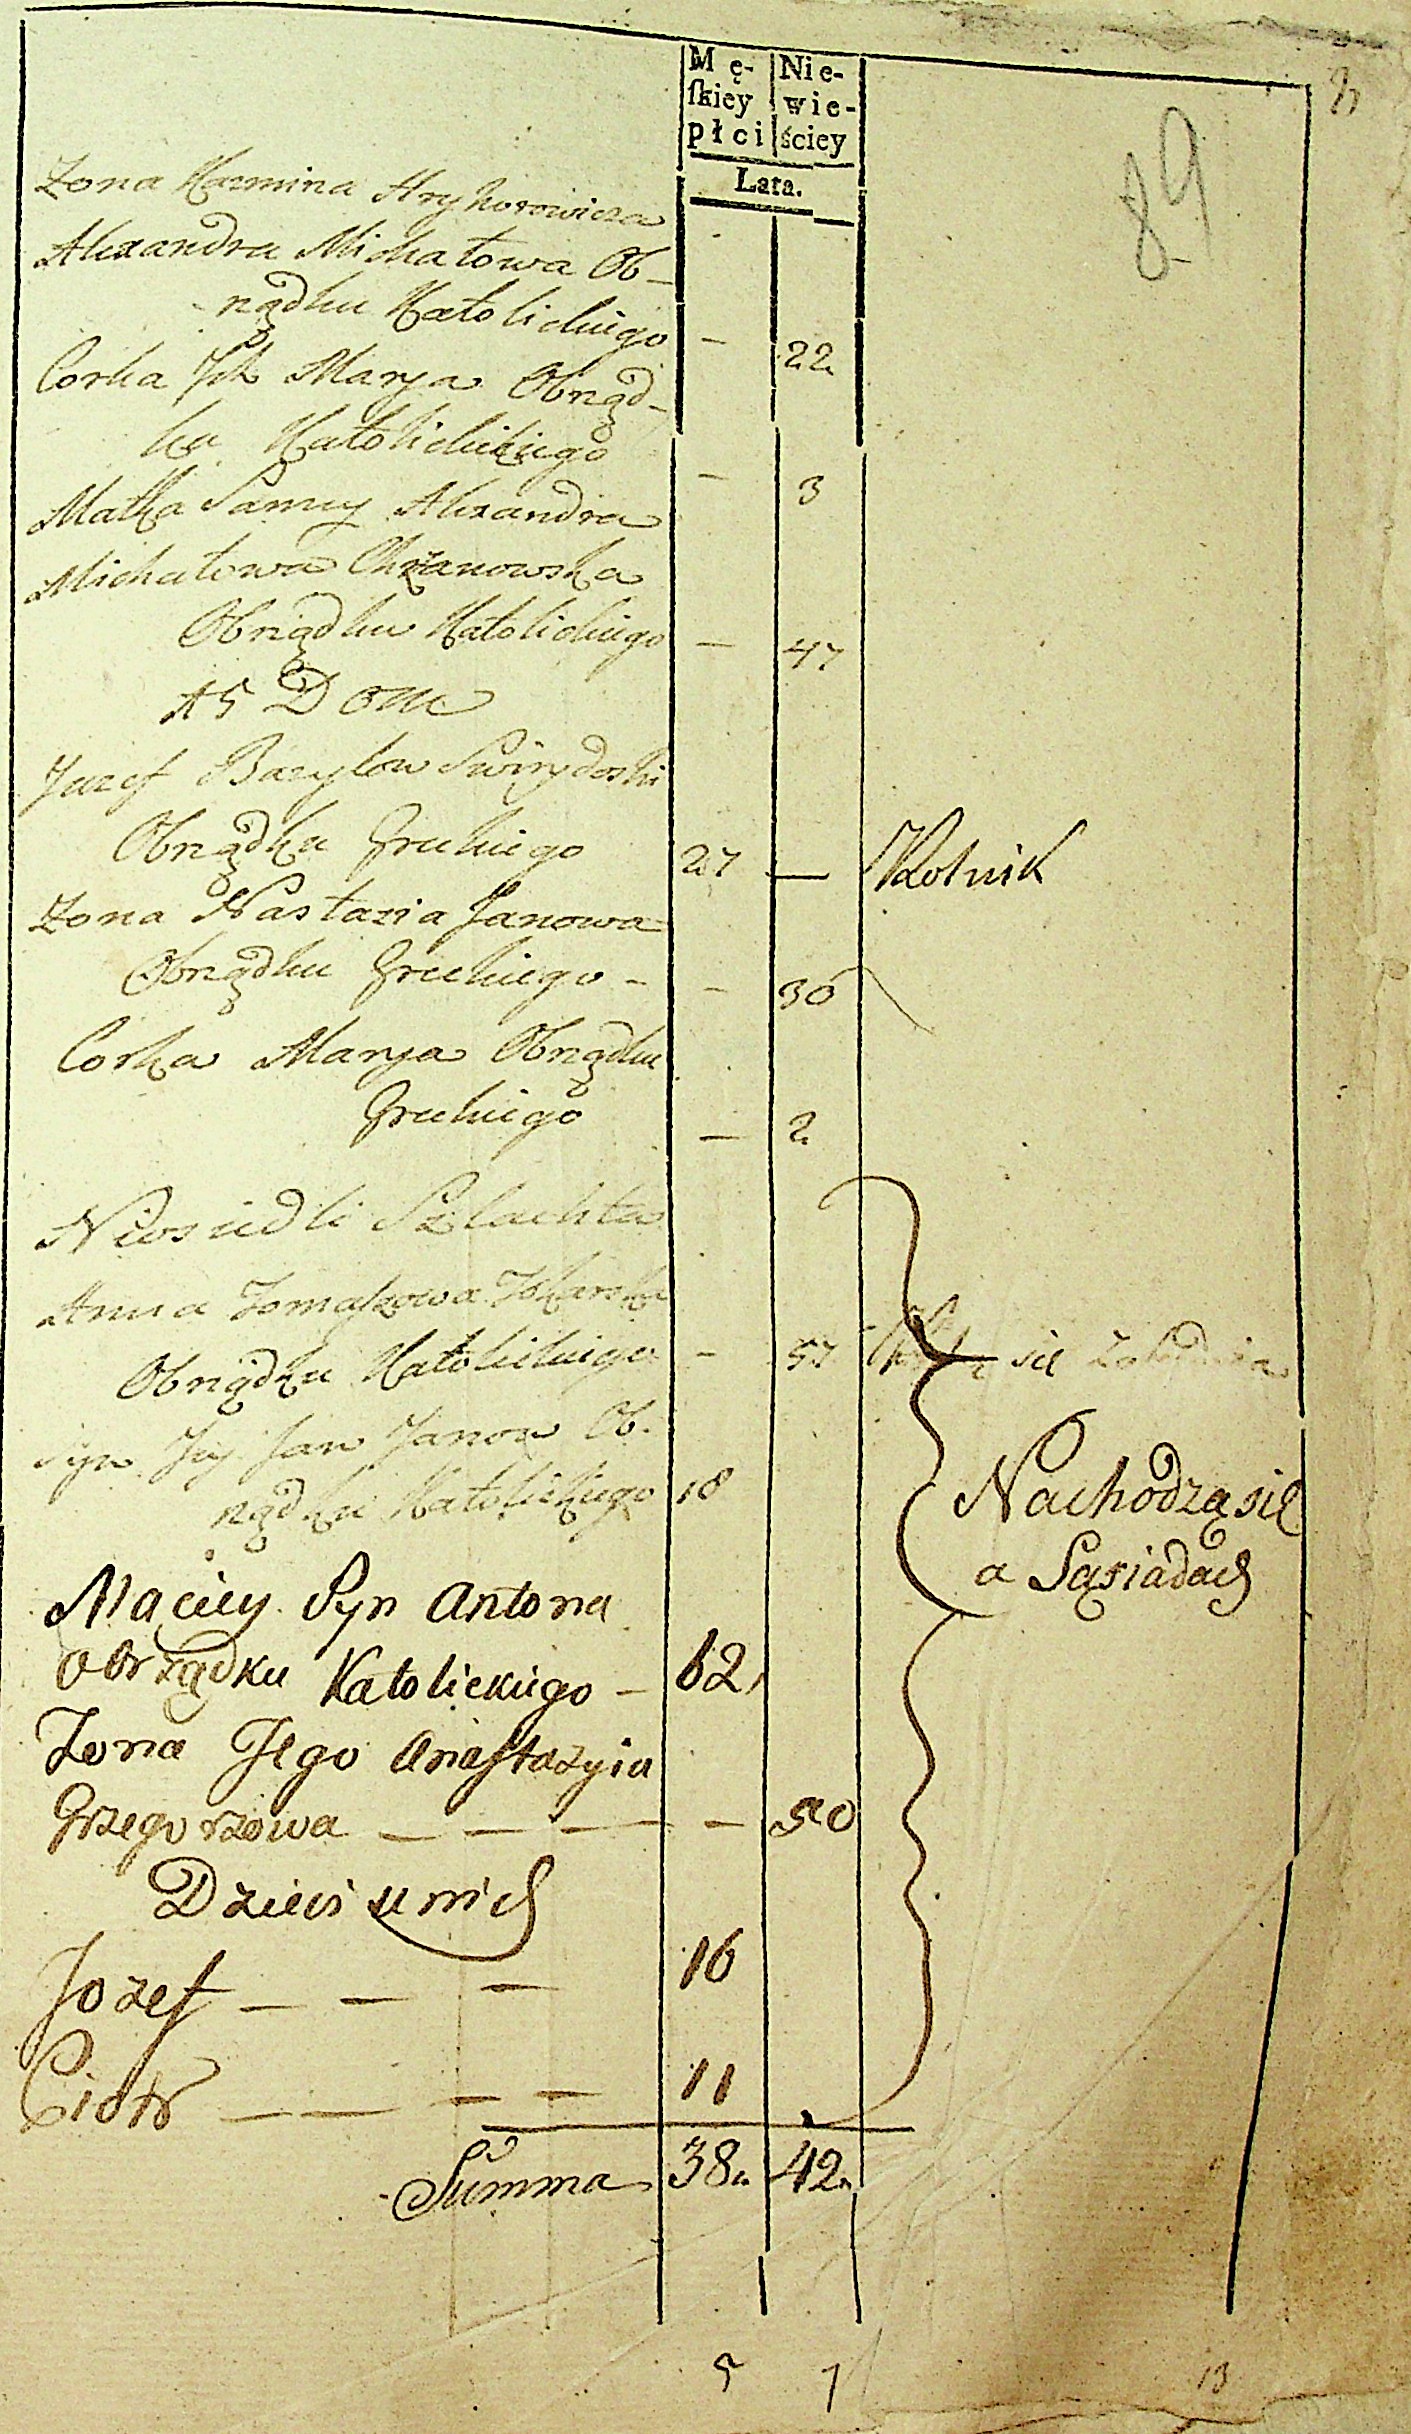 Mę-
skiey
płci
Nie-
wie-
ściey
Lata.
89
Zona Kazmira Hryhorowicza
Alexandra Michałowa Ob-
rządku Katolickiego - 22
Corka Ich Marya Obrząd-
ku Katolickiego - 3
Matka Samey Alexandra
Michałowa Chrzanowska
Obrządku Katolickiego - 47
15 Dom
Jozef Bazylow
Obrządku Greckiego 27 — Rolnik
Zona Nastazia Janowa
Obrządku Greckiego - - 30
Corka Marya Obrządku
Greckiego — 2
Nieosiedli Szlachta
Anna Tomaszowa
Obrządku Katolickiego - 57 się
Syn Jey Jan Janow Ob-
rządku Katolickiego 18
Nachodzą się
a Sąsiadach
Maciey Syn Antona
Obrządku Katolickiego — 62
Zona Jego Anastazyia
Grzegorzowa — — — — 50
Dzieci u nich
Jozef — — — 16
Piotr — — — — 11
Summa 38. 42.
5 7 13